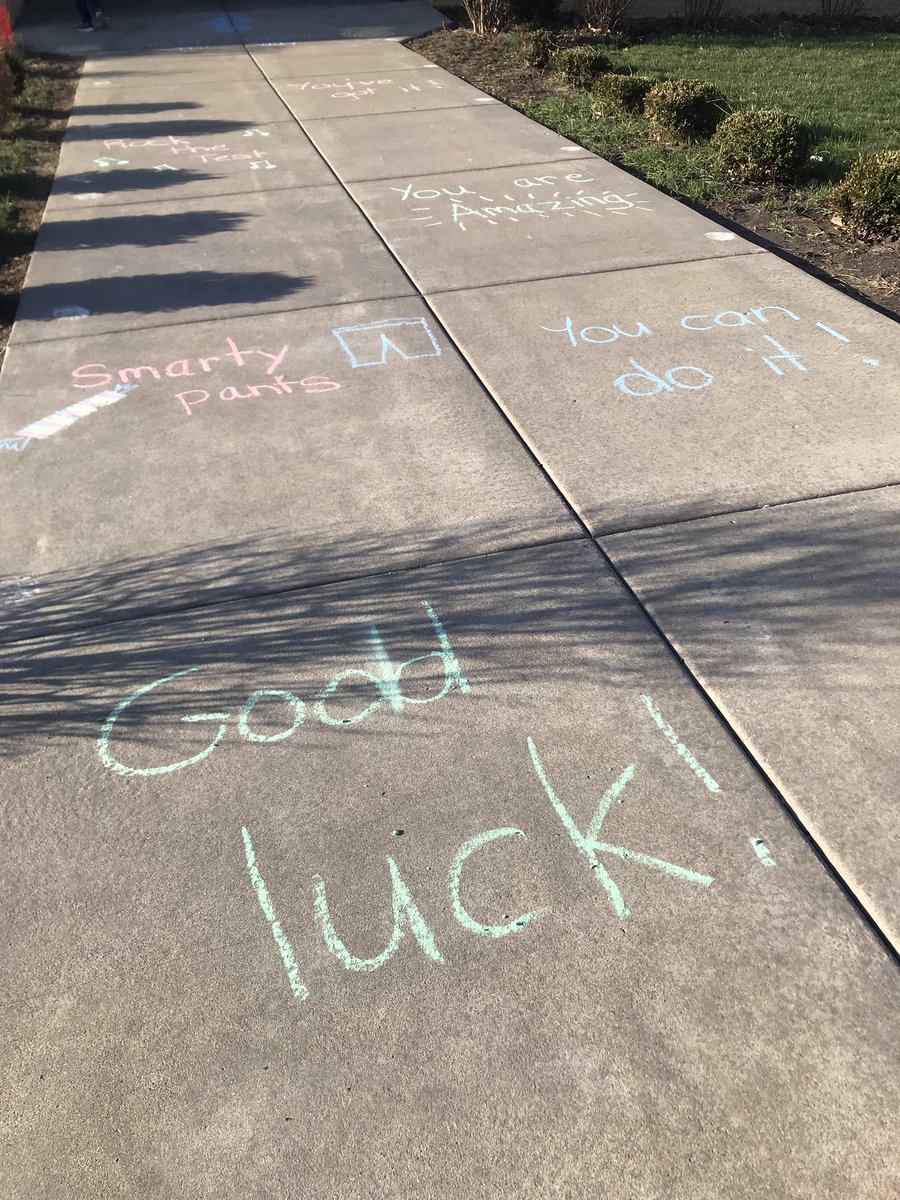 You've
got it!
Rock
the
Test
You are
Amazing
Smarty
pants
You can
do it!
Good
luck!